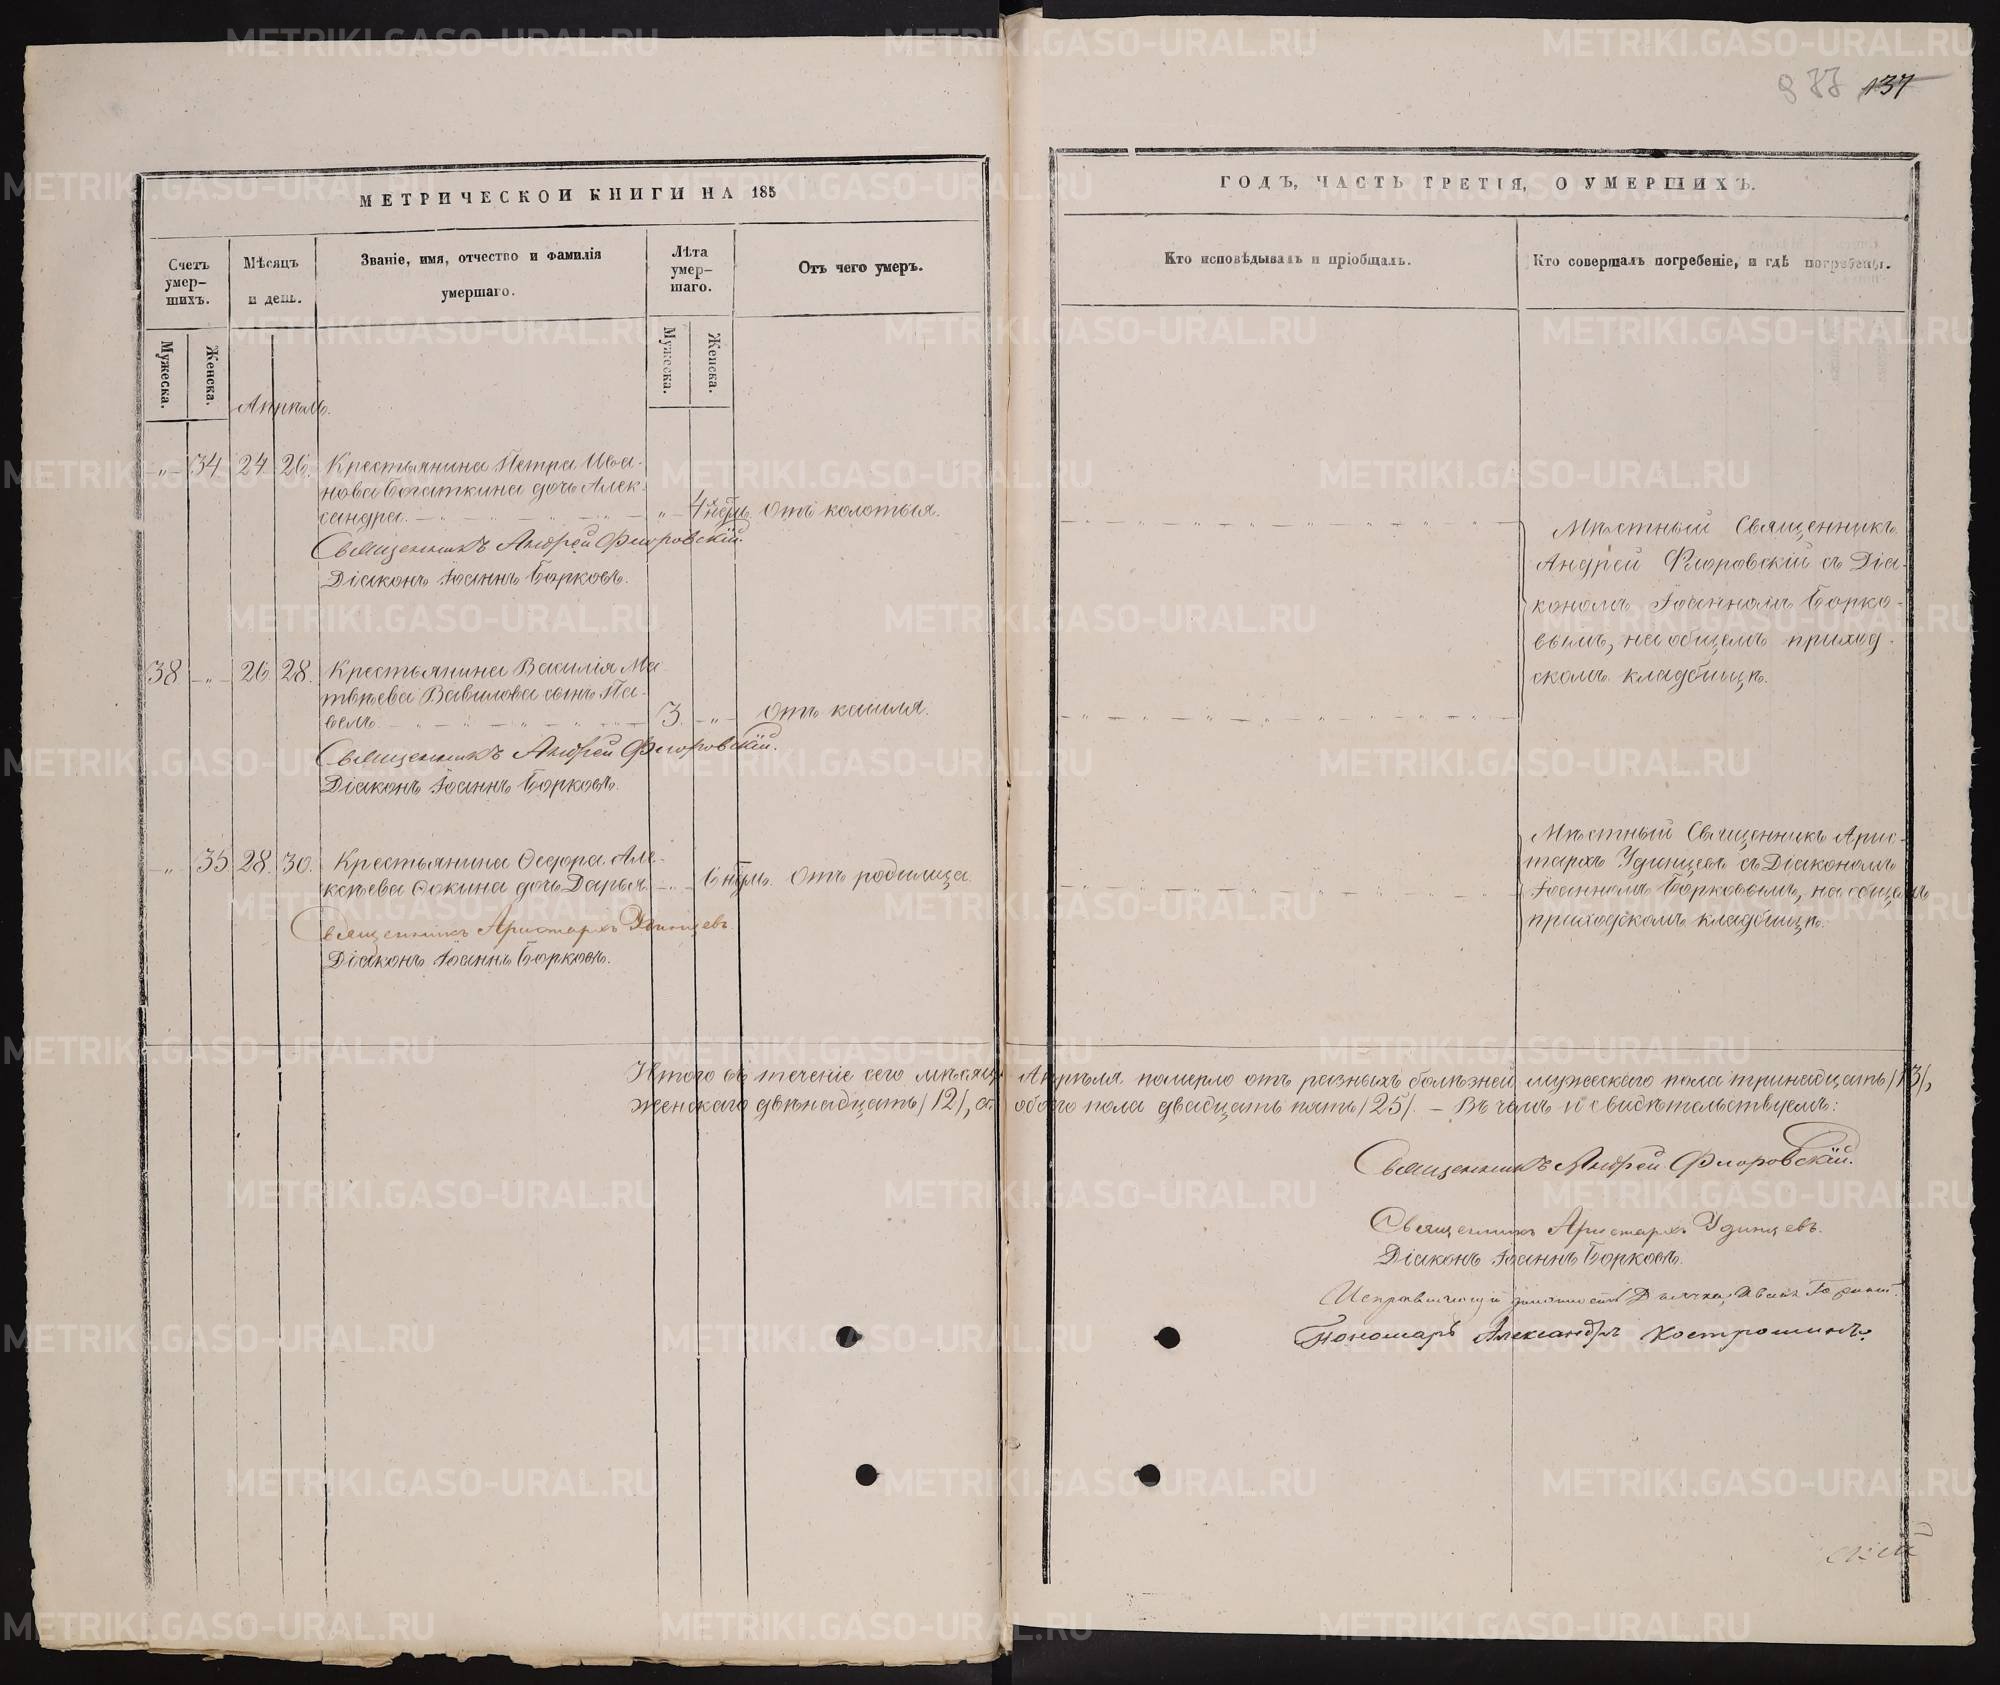 877 137
МЕТРИЧЕСКОЙ КНИГИ НА 185
ГОДЪ, ЧАСТЬ ТРЕТІЯ, О УМЕРШИХЪ.
Счетъ умер-шихъ.
Мѣсяцъ и день.
Званіе, имя, отчество и фамилія умершаго.
Лѣта умер-шаго.
Отъ чего умеръ.
Кто исповѣдывалъ и пріобщалъ.
Кто совершалъ погребеніе, и гдѣ погребены.
Мужеска.
Женска.
Мужеска.
Женска.
Апрѣль.
-„- 34 24 26. Крестьянина Петра Ива-
нова Богаткина дочь Алек-
сандра. „ 4х нѣд. Отъ колотья.
Священникъ Андрей Флоровскій.
Діаконъ Іоаннъ Борковъ.
Мѣстный Священникъ
Андрей Флоровскій съ Діа-
кономъ Іоанномъ Борко-
вымъ, на общемъ приход-
скомъ кладбищѣ.
38 -„- 26 28. Крестьянина Василія Ма-
твѣева Вавилова сынъ Па-
велъ 3. -„- Отъ кашля.
Священникъ Андрей Флоровскій.
Діаконъ Іоаннъ Борковъ.
-„- 35 28. 30. Крестьянина Ѳедора Але-
ксѣева Сокина дочь Дарья. -„- 6 нѣд. Отъ родимца.
Священникъ Аристархъ Удинцевъ
Діаконъ Іоаннъ Борковъ.
Мѣстный Священникъ Арис-
тархъ Удинцевъ съ Діакономъ
Іоанномъ Борковымъ, на общемъ
приходскомъ кладбищѣ.
Итого въ теченіе сего мѣсяца Апрѣля померло отъ разныхъ болѣзней мужескаго пола тринадцать /13/,
женскаго двѣнадцать /12/, а обоего пола двадцать пять /25/. – Въ чемъ и свидѣтельствуемъ:
Священникъ Андрей Флоровскій.
Священникъ Аристархъ Удинцевъ.
Діаконъ Іоаннъ Борковъ.
Исправляющій должность Дьячка, Иванъ
Пономарь Александръ Костроминъ.
METRIKI.GASO-URAL.RU